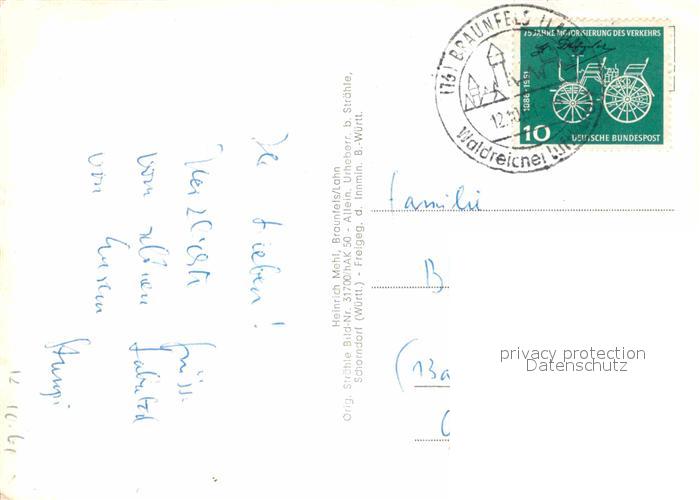 Ihr Lieben!
Herzliche Grüsse
vom schönen
von
Heinrich Mehl, Braunfels/Lahn
Orig. Strähle Bild-Nr. 31700/hAK 50 - Allein. Urheberr. b. Strähle,
Schorndorf (Württ.) - Freigeg. d. Innmin. B.-Württ.
(16) BRAUNFELS (LA
12.10
Waldreicher Luft
75 JAHRE MOTORISIERUNG DES VERKEHRS
1886-1961
10
DEUTSCHE BUNDESPOST
Familie
B
(Ba
privacy protection
Datenschutz
12 10.61